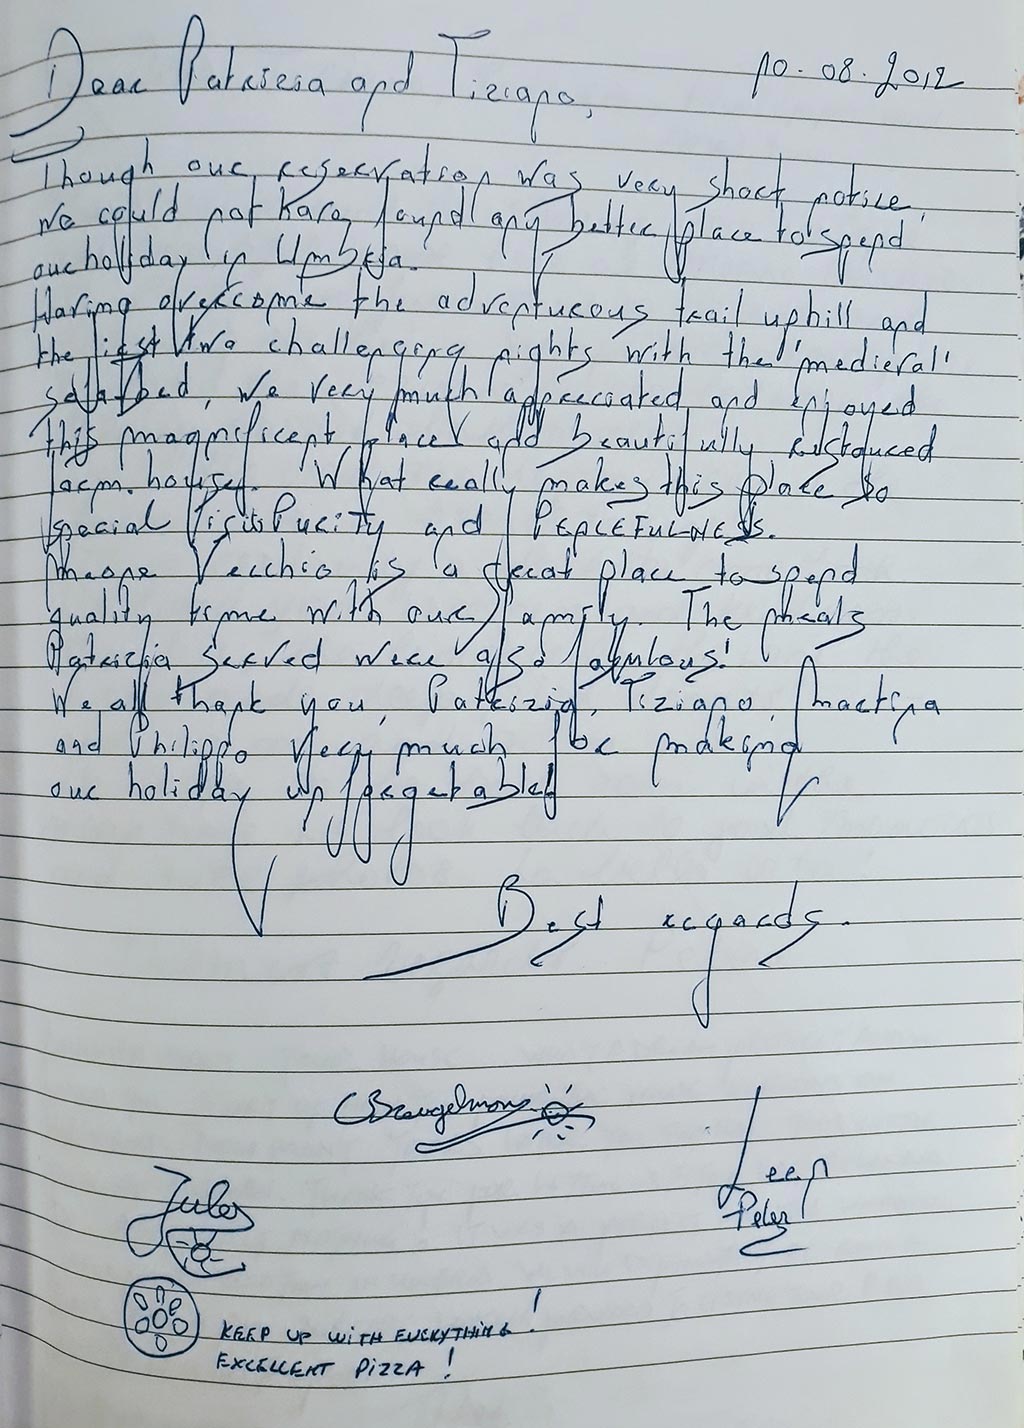 Dear Patrizia and Tiziano,
10.08.2012
Though our reservation was very short notice,
we could not have found any better place to spend
our holiday in Umbria.
Having overcome the adventurous trail uphill and
the first two challenging nights with the 'medieval'
bed, we very much appreciated and enjoyed
this magnificent place and beautifully
farm house. What really makes this place so
special is its Purity and PEACEFULNESS.
Vecchio is a great place to spend
quality time with our family. The meals
Patrizia served were also fabulous!
We all thank you, Patrizia, Tiziano, Martina
and Philippo very much for making
our holiday unforgetable!
Best regards.
Jules
Leen
Peter
KEEP UP WITH EVERYTHING!
EXCELLENT PIZZA!